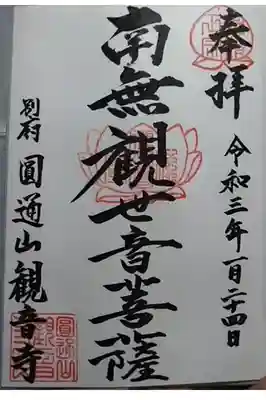 奉拝
令和三年一月二十四日
南無観世音菩薩
別府 圓通山 観音寺